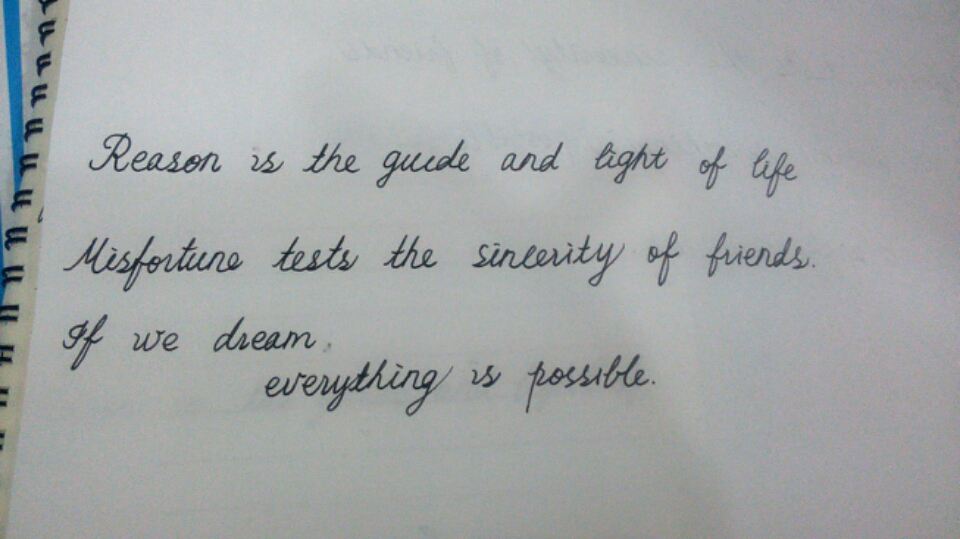 Reason is the guide and light of life
Misfortune tests the sincerity of friends.
If we dream.
everything is possible.